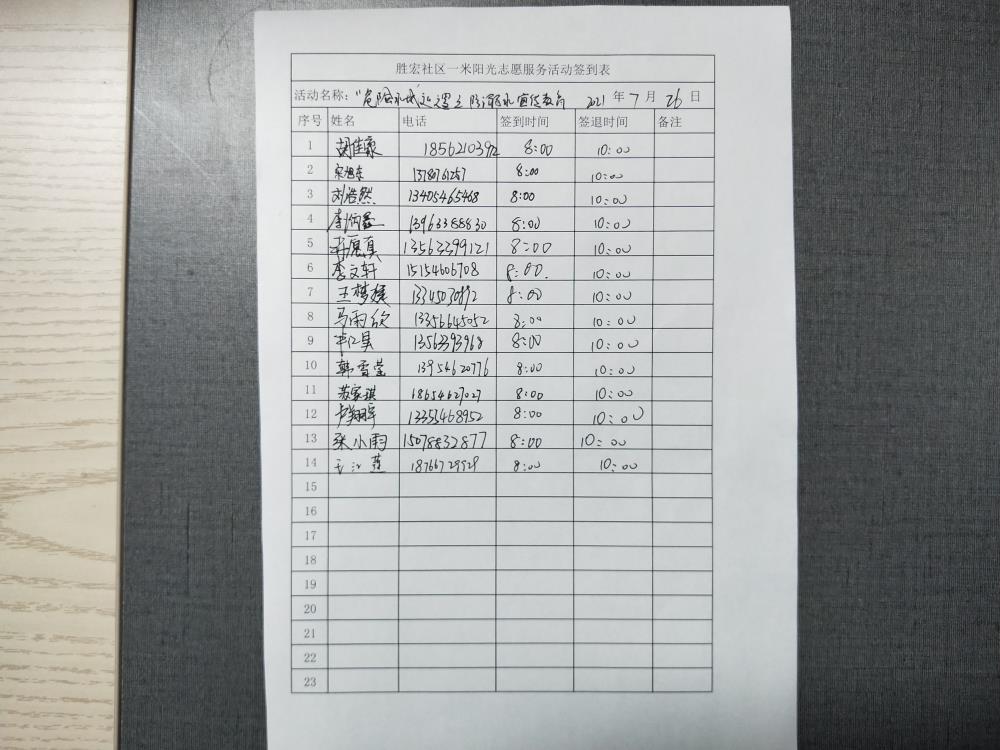 胜宏社区一米阳光志愿服务活动签到表
活动名称："危险水域 防溺水宣传教育 2021 年 7 月 26 日
序号 姓名 电话 签到时间 签退时间 备注
1 胡佳豪 8:00 10:00
2 宋旭东 13780761257 8:00 10:00
3 刘浩然 13405465468 8:00 10:00
4 李炳鑫 13963388830 8:00 10:00
5 13563399121 8:00 10:00
6 李文轩 15154606708 8:00 10:00
7 王梦媛 8:00 10:00
8 马雨欣 13356645052 8:00 10:00
9 13563393968 8:00 10:00
10 韩雪莹 13954620776 8:00 10:00
11 苏家琪 18654627027 8:00 10:00
12 13355468952 8:00 10:00
13 张小雨 15078832877 8:00 10:00
14 8:00 10:00
15
16
17
18
19
20
21
22
23